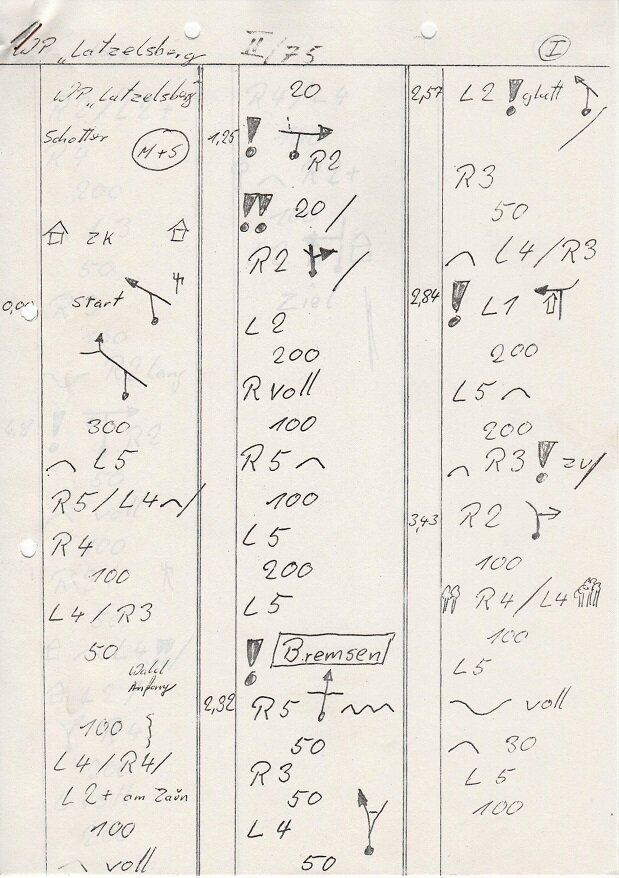 WP "Latzelsberg II/75 I
WP "Latzelsberg"
Schotter M+S
ZK
0,00 Start
300
L5
R5/L4 /
R4
100
L4/R3
50
Wald Anfang
100 }
L4/R4/
L2+ am Zaun
100
voll
20
1,25 ! R2
!! 20/
R2 /
L2
200
R voll
100
R5
100
L5
200
L5
! Bremsen
2,32 R5
50
R3
50
L4
50
2,57 L2 ! glatt /
R3
50
L4/R3
2,84 ! L1
200
L5
200
R3 ! zu/
3,43 R2
100
R4/L4
100
L5
voll
30
L5
100